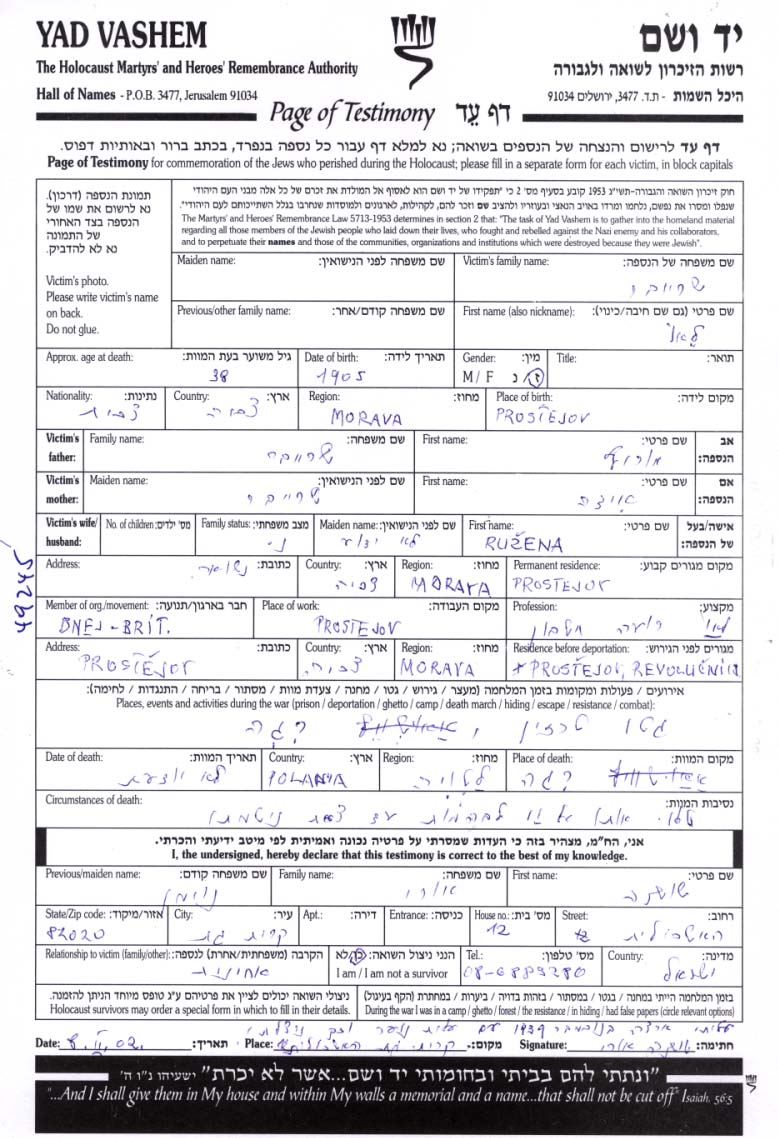 YAD VASHEM
יד ושם
The Holocaust Martyrs' and Heroes' Remembrance Authority
רשות הזיכרון לשואה ולגבורה
Hall of Names - P.O.B. 3477, Jerusalem 91034
היכל השמות - ת.ד. 3477, ירושלים 91034
Page of Testimony דף עֵד
דף עד לרישום והנצחה של הנספים בשואה; נא למלא דף עבור כל נספה בנפרד, בכתב ברור ובאותיות דפוס.
Page of Testimony for commemoration of the Jews who perished during the Holocaust; please fill in a separate form for each victim, in block capitals
תמונת הנספה (דרכון).
נא לרשום את שמו של
הנספה בצד האחורי
של התמונה
נא לא להדביק.
Victim's photo.
Please write victim's name
on back.
Do not glue.
חוק זיכרון השואה והגבורה-תשי"ג 1953 קובע בסעיף מס' 2 כי "תפקידו של יד ושם הוא לאסוף אל המולדת את זכרם של כל אלה מבני העם היהודי
שנפלו ומסרו את נפשם, נלחמו ומרדו באויב הנאצי ובעוזריו ולהציב שם וזכר להם, לקהילות, לארגונים ולמוסדות שנחרבו בגלל השתייכותם לעם היהודי".
The Martyrs' and Heroes' Remembrance Law 5713-1953 determines in section 2 that: "The task of Yad Vashem is to gather into the homeland material
regarding all those members of the Jewish people who laid down their lives, who fought and rebelled against the Nazi enemy and his collaborators,
and to perpetuate their names and those of the communities, organizations and institutions which were destroyed because they were Jewish".
Victim's family name: שם משפחה של הנספה:
שרייבר
Maiden name: שם משפחה לפני הנישואין:
First name (also nickname): שם פרטי (גם שם חיבה/כינוי):
Previous/other family name: שם משפחה קודם/אחר:
Title: תואר:
Gender: מין:
M / F ז/נ
Date of birth: תאריך לידה:
1905
Approx. age at death: גיל משוער בעת המוות:
38
Place of birth: מקום לידה:
PROSTĚJOV
Region: מחוז:
MORAVA
Country: ארץ:
Nationality: נתינות:
Victim's father: אב הנספה:
First name: שם פרטי:
Family name: שם משפחה:
שרייבר
Victim's mother: אם הנספה:
First name: שם פרטי:
Maiden name: שם לפני הנישואין:
שרייבר
Victim's wife/ husband: אישה/בעל של הנספה:
First name: שם פרטי:
RUŽENA
Maiden name: שם לפני הנישואין:
לא ידוע
Family status: מצב משפחתי:
No. of children: מס' ילדים:
Permanent residence: מקום מגורים קבוע:
PROSTEJOV
Region: מחוז:
MORAVA
Country: ארץ:
Address: כתובת:
Profession: מקצוע:
רואה חשבון
Place of work: מקום העבודה:
PROSTEJOV
Member of org./movement: חבר בארגון/תנועה:
BNEJ-BRIT.
Residence before deportation: מגורים לפני הגירוש:
PROSTĚJOV, REVOLUČNÍ
Region: מחוז:
MORAVA
Country: ארץ:
Address: כתובת:
PROSTĚJOV
אירועים / פעולות ומקומות בזמן המלחמה (מעצר / גירוש / גטו / מחנה / צעדת מוות / מסתור / בריחה / התנגדות / לחימה):
Places, events and activities during the war (prison / deportation / ghetto / camp / death march / hiding / escape / resistance / combat):
גטו טרזין, ריגה
Place of death: מקום המוות:
ריגה
Region: מחוז:
לטויה
Country: ארץ:
POLANYA
Date of death: תאריך המוות:
לא יודעת
Circumstances of death: נסיבות המוות:
אני, הח"מ, מצהיר בזה כי העדות שמסרתי על פרטיה נכונה ואמיתית לפי מיטב ידיעתי והכרתי.
I, the undersigned, hereby declare that this testimony is correct to the best of my knowledge.
First name: שם פרטי:
שושנה
Family name: שם משפחה:
Previous/maiden name: שם משפחה קודם:
Street: רחוב:
האשכולית
House no.: מס' בית:
12
Entrance: כניסה:
Apt.: דירה:
City: עיר:
קרית גת
State/Zip code: אזור/מיקוד:
82020
Country: מדינה:
ישראל
Tel.: מס' טלפון:
08-6883280
הנני ניצול השואה: כן/לא
I am / I am not a survivor
Relationship to victim (family/other): הקרבה (משפחתית/אחרת) לנספה:
אחיינית
בזמן המלחמה הייתי במחנה / בגטו / במסתור / בזהות בדויה / ביערות / במחתרת (הקף בעיגול)
During the war I was in a camp / ghetto / forest / the resistance / in hiding / had false papers (circle relevant options)
ניצולי השואה יכולים לציין את פרטיהם ע"ג טופס מיוחד הניתן להזמנה.
Holocaust survivors may order a special form in which to fill in their details.
עליתי ארצה בנובמבר 1939 עם עלית נוער וכך ניצלתי
Date: תאריך: 8.II.02. Place: מקום: קרית גת Signature: חתימה:
"ונתתי להם בביתי ובחומותי יד ושם...אשר לא יכרת" ישעיהו נ"ו ה'
"...And I shall give them in My house and within My walls a memorial and a name...that shall not be cut off" Isaiah, 56:5